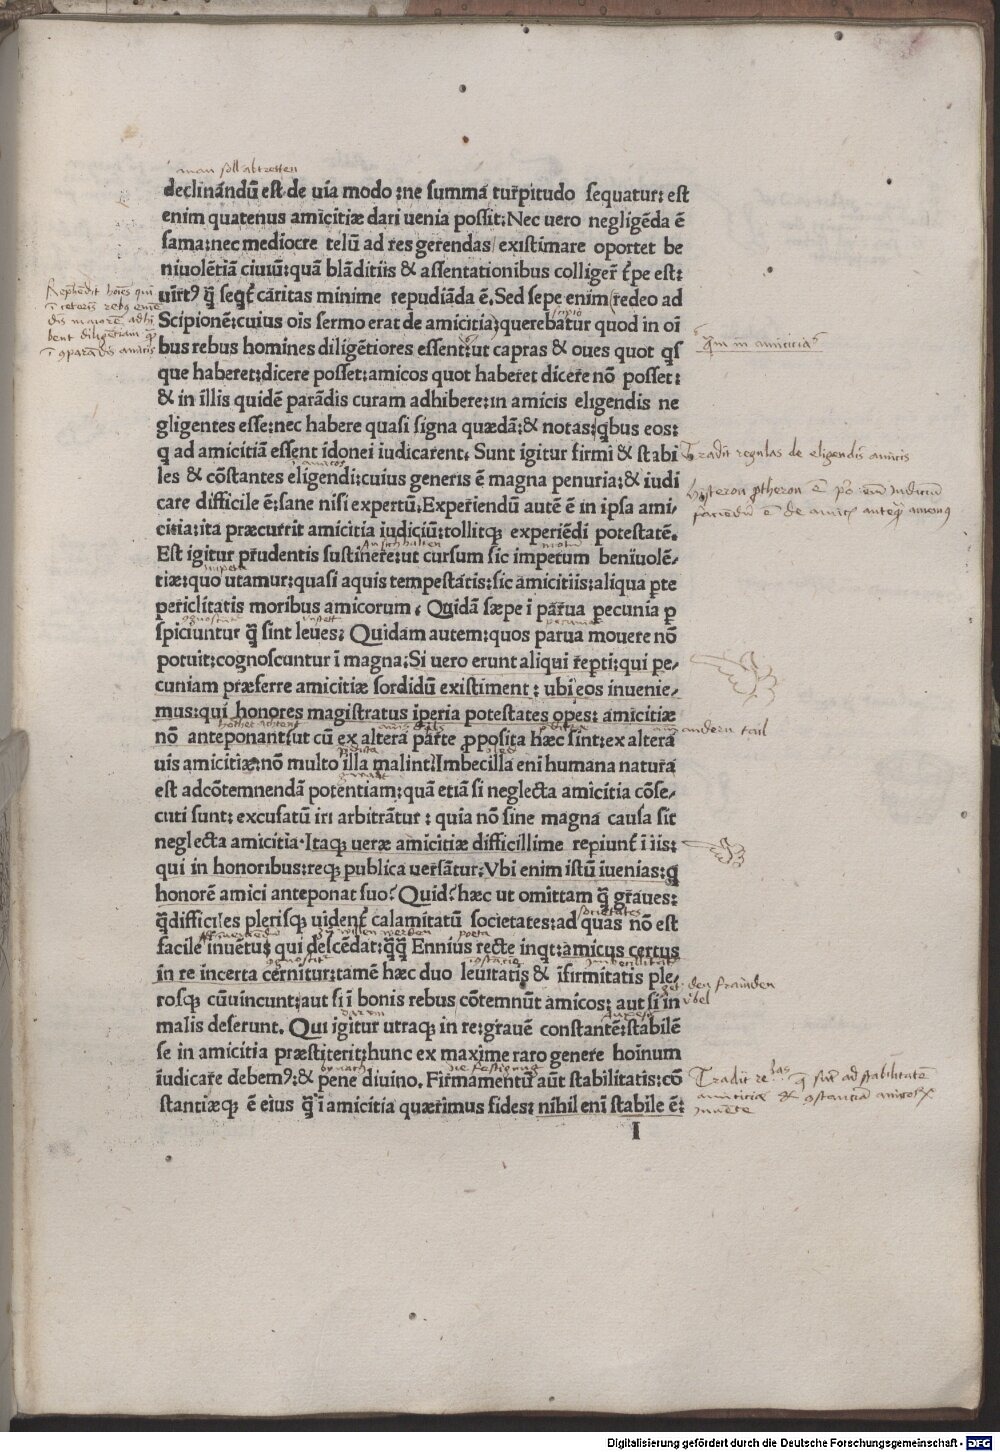 man soll abtretten
declinandũ est de uia modo:ne summa turpitudo sequatur: est
enim quatenus amicitiæ dari uenia possit:Nec uero negligẽda ẽ
fama:nec mediocre telũ ad res gerendas existimare oportet be
niuolẽtiã ciuiũ:quã blãditiis & assentationibus colliger̃ t̃pe est:
uirt⁹ q̃ seqt̃ caritas minime repudiãda ẽ. Sed sepe enim (redeo ad
Scipionẽ:cuius ois sermo erat de amicitia) querebatur quod in oĩ
bus rebus homines diligẽtiores essent:ut capras & oues quot qs̃
que haberet:dicere posset:amicos quot haberet dicere nõ posset:
& in illis quidẽ parãdis curam adhibere:in amicis eligendis ne
gligentes esse:nec habere quasi signa quædã:& notas:qbus eos:
q ad amicitiã essent idonei iudicarent. Sunt igitur firmi & stabi
les & cõstantes eligendi:cuius generis ẽ magna penuria:& iudi
care difficile ẽ:sane nisi expertũ. Experiendũ autẽ ẽ in ipsa ami/
citia:ita præcurrit amicitia iudiciũ:tollitqꝫ experiẽdi potestatẽ.
Est igitur prudentis sustinere:ut cursum sic impetum beniuolẽ/
tiæ:quo utamur:quasi aquis tempestatis:sic amicitiis:aliqua ꝑte
periclitatis moribus amicorum. Quidã sæpe ĩ parua pecunia ꝑ
spiciuntur q̃ sint leues: Quidam autem:quos parua mouere nõ
potuit:cognoscuntur ĩ magna:Si uero erunt aliqui repti:qui pe/
cuniam præferre amicitiæ sordidũ existiment: ubi eos inuenie/
mus:qui honores magistratus iperia potestates opes: amicitiæ
nõ anteponant:ut cũ ex altera parte ꝓposita hæc sint:ex altera
uis amicitiæ:nõ multo illa malint:Imbecilla enĩ humana natura
est ad cõtemnendã potentiam:quã etiã si neglecta amicitia cõse/
cuti sunt: excusatũ iri arbitrãtur: quia nõ sine magna causa sit
neglecta amicitia. Itaqꝫ ueræ amicitiæ difficillime repiunt̃ ĩ iis:
qui in honoribus:reqꝫ publica uersãtur: Vbi enim istũ iuenias:q
honorẽ amici anteponat suo? Quid? hæc ut omittam q̃ graues:
q̃ difficiles plerisqꝫ uident̃ calamitatũ societates:ad quas nõ est
facile inuẽtus qui descẽdat:q̃q̃ Ennius recte inqt:amicus certus
in re incerta cernitur:tamẽ hæc duo leuitatis & ĩfirmitatis ple/
rosqꝫ cũuincunt:aut si ĩ bonis rebus cõtemnũt amicos: aut si in
malis deserunt. Qui igitur utraqꝫ in re:grauẽ constantẽ:stabilẽ
se in amicitia præstiterit:hunc ex maxime raro genere hoinum
iudicare debem⁹:& pene diuino. Firmamentũ aũt stabilitatis:cõ
stantiæqꝫ ẽ eius q̃ ĩ amicitia quærimus fides: nihil enĩ stabile ẽ:
I
Rephẽdit hoĩes qui
bent diligentiam
q̃m in amiciciaˢ
Tradit regulas de eligendis amicis
am andern tail
Tradit re
stabilitatẽ
Digitalisierung gefördert durch die Deutsche Forschungsgemeinschaft - DFG